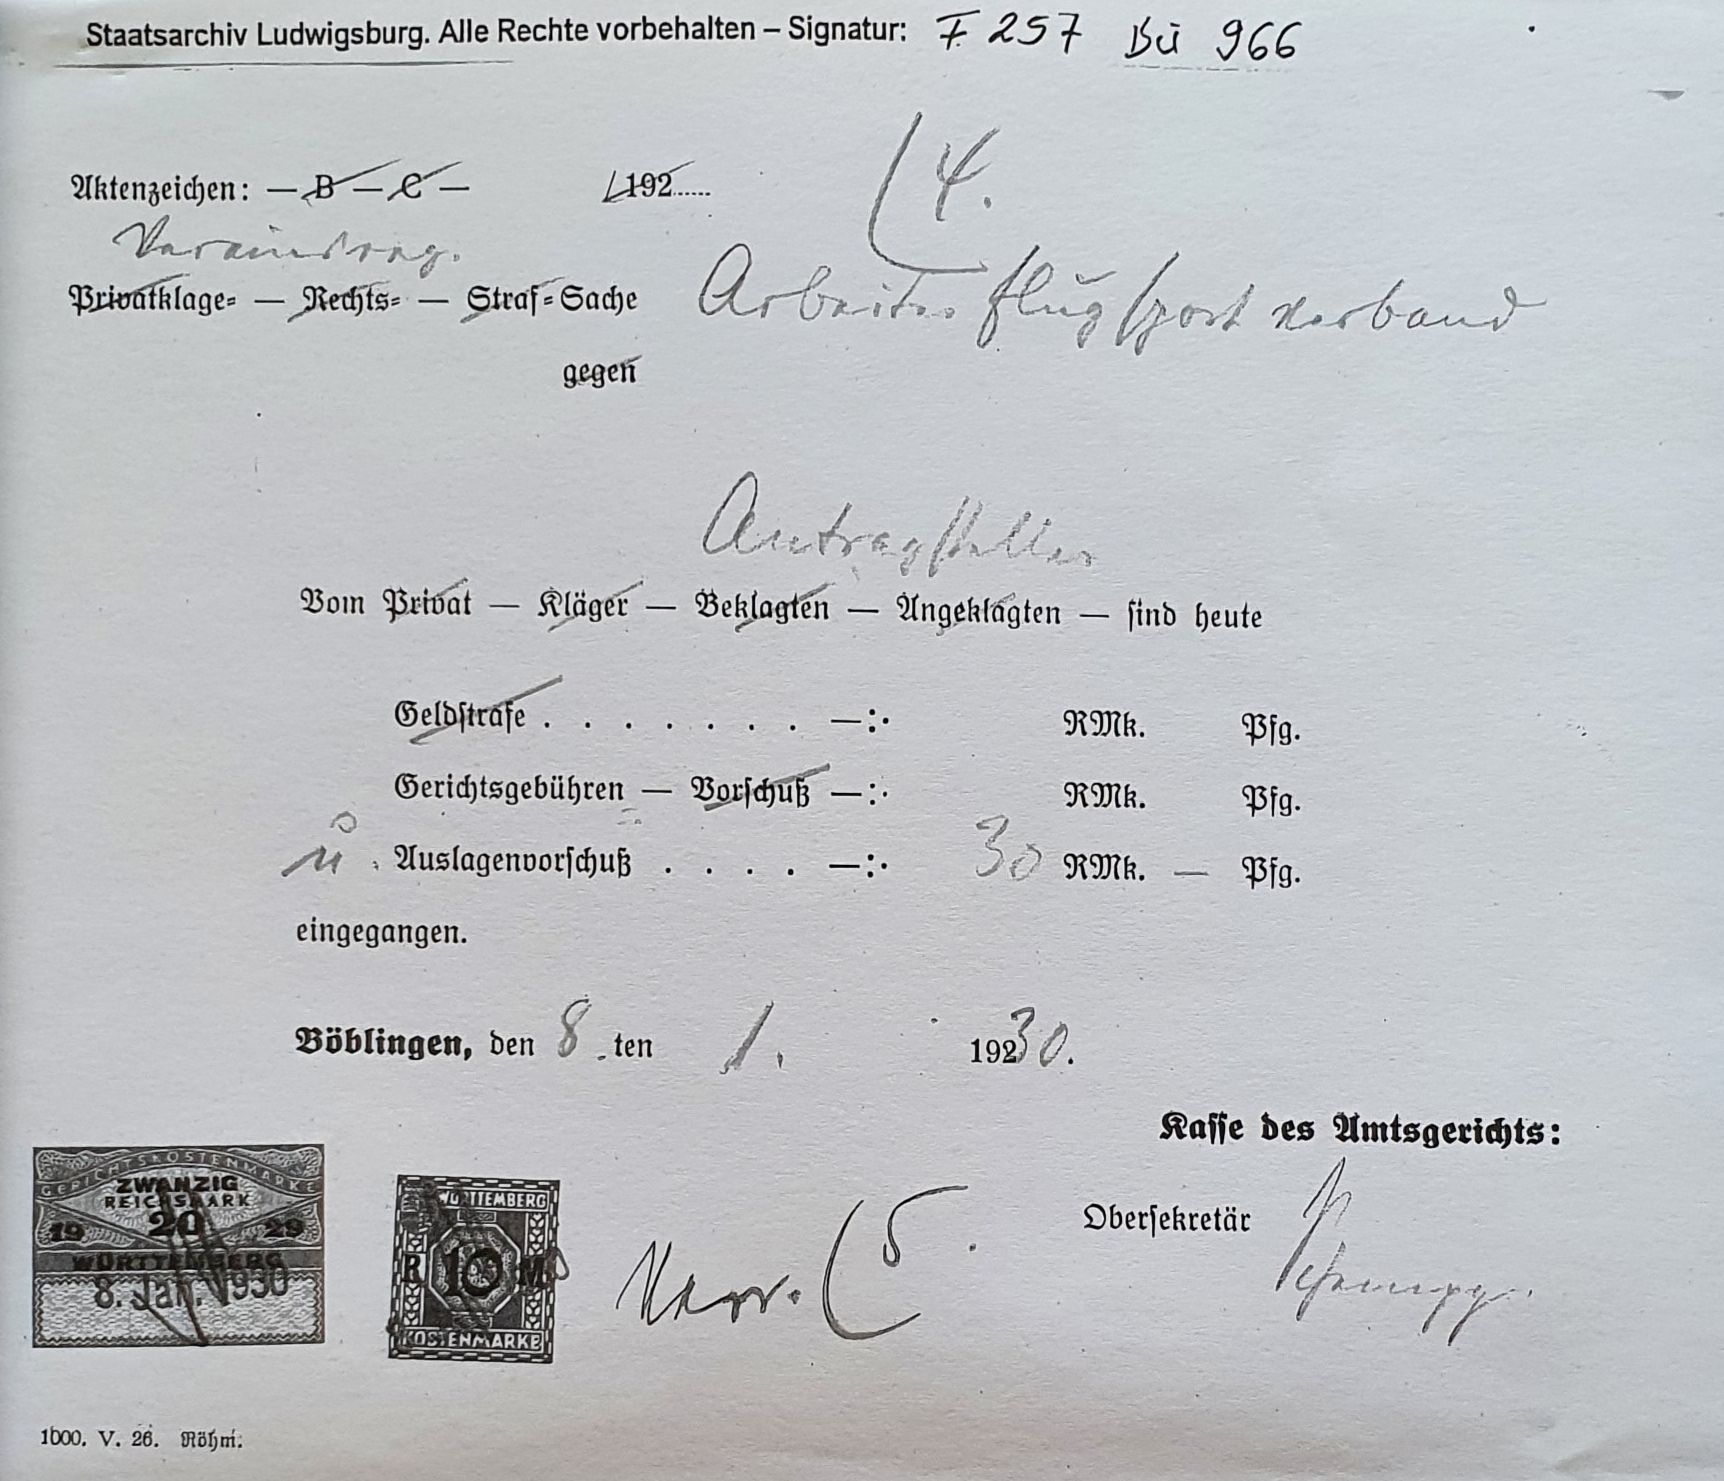 Staatsarchiv Ludwigsburg. Alle Rechte vorbehalten – Signatur: F 257 Bü 966
4.
Aktenzeichen: — B — C — 192......
Vereinsreg.
Privatklage- — Rechts- — Straf-Sache Arbeiter flugsportverband
gegen
Antragsteller
Vom Privat — Kläger — Beklagten — Angeklagten — sind heute
Geldstrafe . . . . . . . —:· RMk. Pfg.
Gerichtsgebühren — Vorschuß —:· RMk. Pfg.
u. Auslagenvorschuß . . . . —:· 30 RMk. — Pfg.
eingegangen.
Böblingen, den 8. ten 1. 19230.
Kasse des Amtsgerichts:
Obersekretär
GERICHTSKOSTENMARKE
ZWANZIG
REICHSMARK
20
19 29
WÜRTTEMBERG
8. Jan. 1930
WÜRTTEMBERG
R 10 M
KOSTENMARKE
5.
1000. V. 26. Röhm.